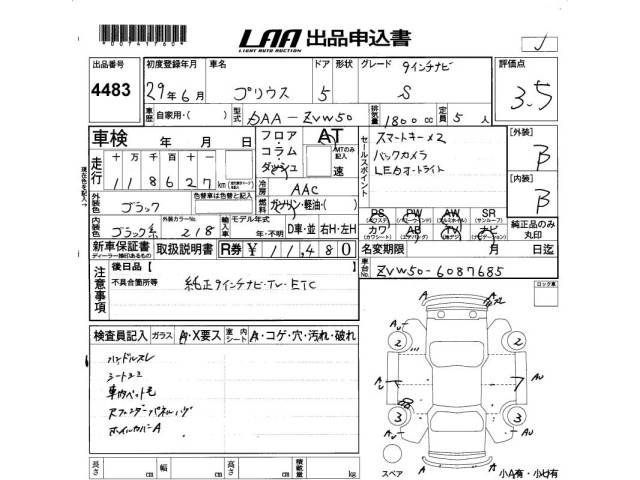 LAA 出品申込書
LIGHT AUTO AUCTION
出品番号 4483
初度登録年月 29年6月
車名 プリウス
ドア 5
形状
グレード 9インチナビ S
評価点 3.5
車歴 自家用・( )
型式 DAA-ZVW50
排気量 1800cc
定員 5人
車検 年 月 日
フロア・コラム・ダッシュ
AT
MTのみ記入 速
セールスポイント
スマートキー×2
バックカメラ
LEDオートライト
[外装] B
[内装] B
走行 十万千百十
118627km
現在色を記入→
外装色 ブラック
色替車は色替と記入
冷房 AAC
燃料 ガソリン・軽油・( )
内装色 ブラック系
外装カラーNo. 218
輸入車 モデル年式 年・不明
D車・並 右H・左H
PS PW AW SR
(パワステ) (パワーウインド) (アルミホイール) (サンルーフ)
カワ AB TV ナビ
(カワシート) (エアバッグ) (ナビゲーション)
純正品のみ丸印
新車保証書
ディーラー捺印あるもの
取扱説明書
R券 ¥11,480
名変期限 月 日迄
車台No. ZVW50-6087685
注意事項
後日品【 】
不具合箇所等
純正9インチナビ・TV・ETC
ロック車
検査員記入
ガラス A・X要ス
室内シート A・コゲ・穴・汚れ・破れ
ハンドルスレ
シートユミ
車内ペット毛
ホイルカバーA
A
AU 2 2 AU
AU 7 AU
AU 3 3 AU
A
スペア
小A有・小U有
長さ cm
幅 cm
高さ cm
積載量 kg